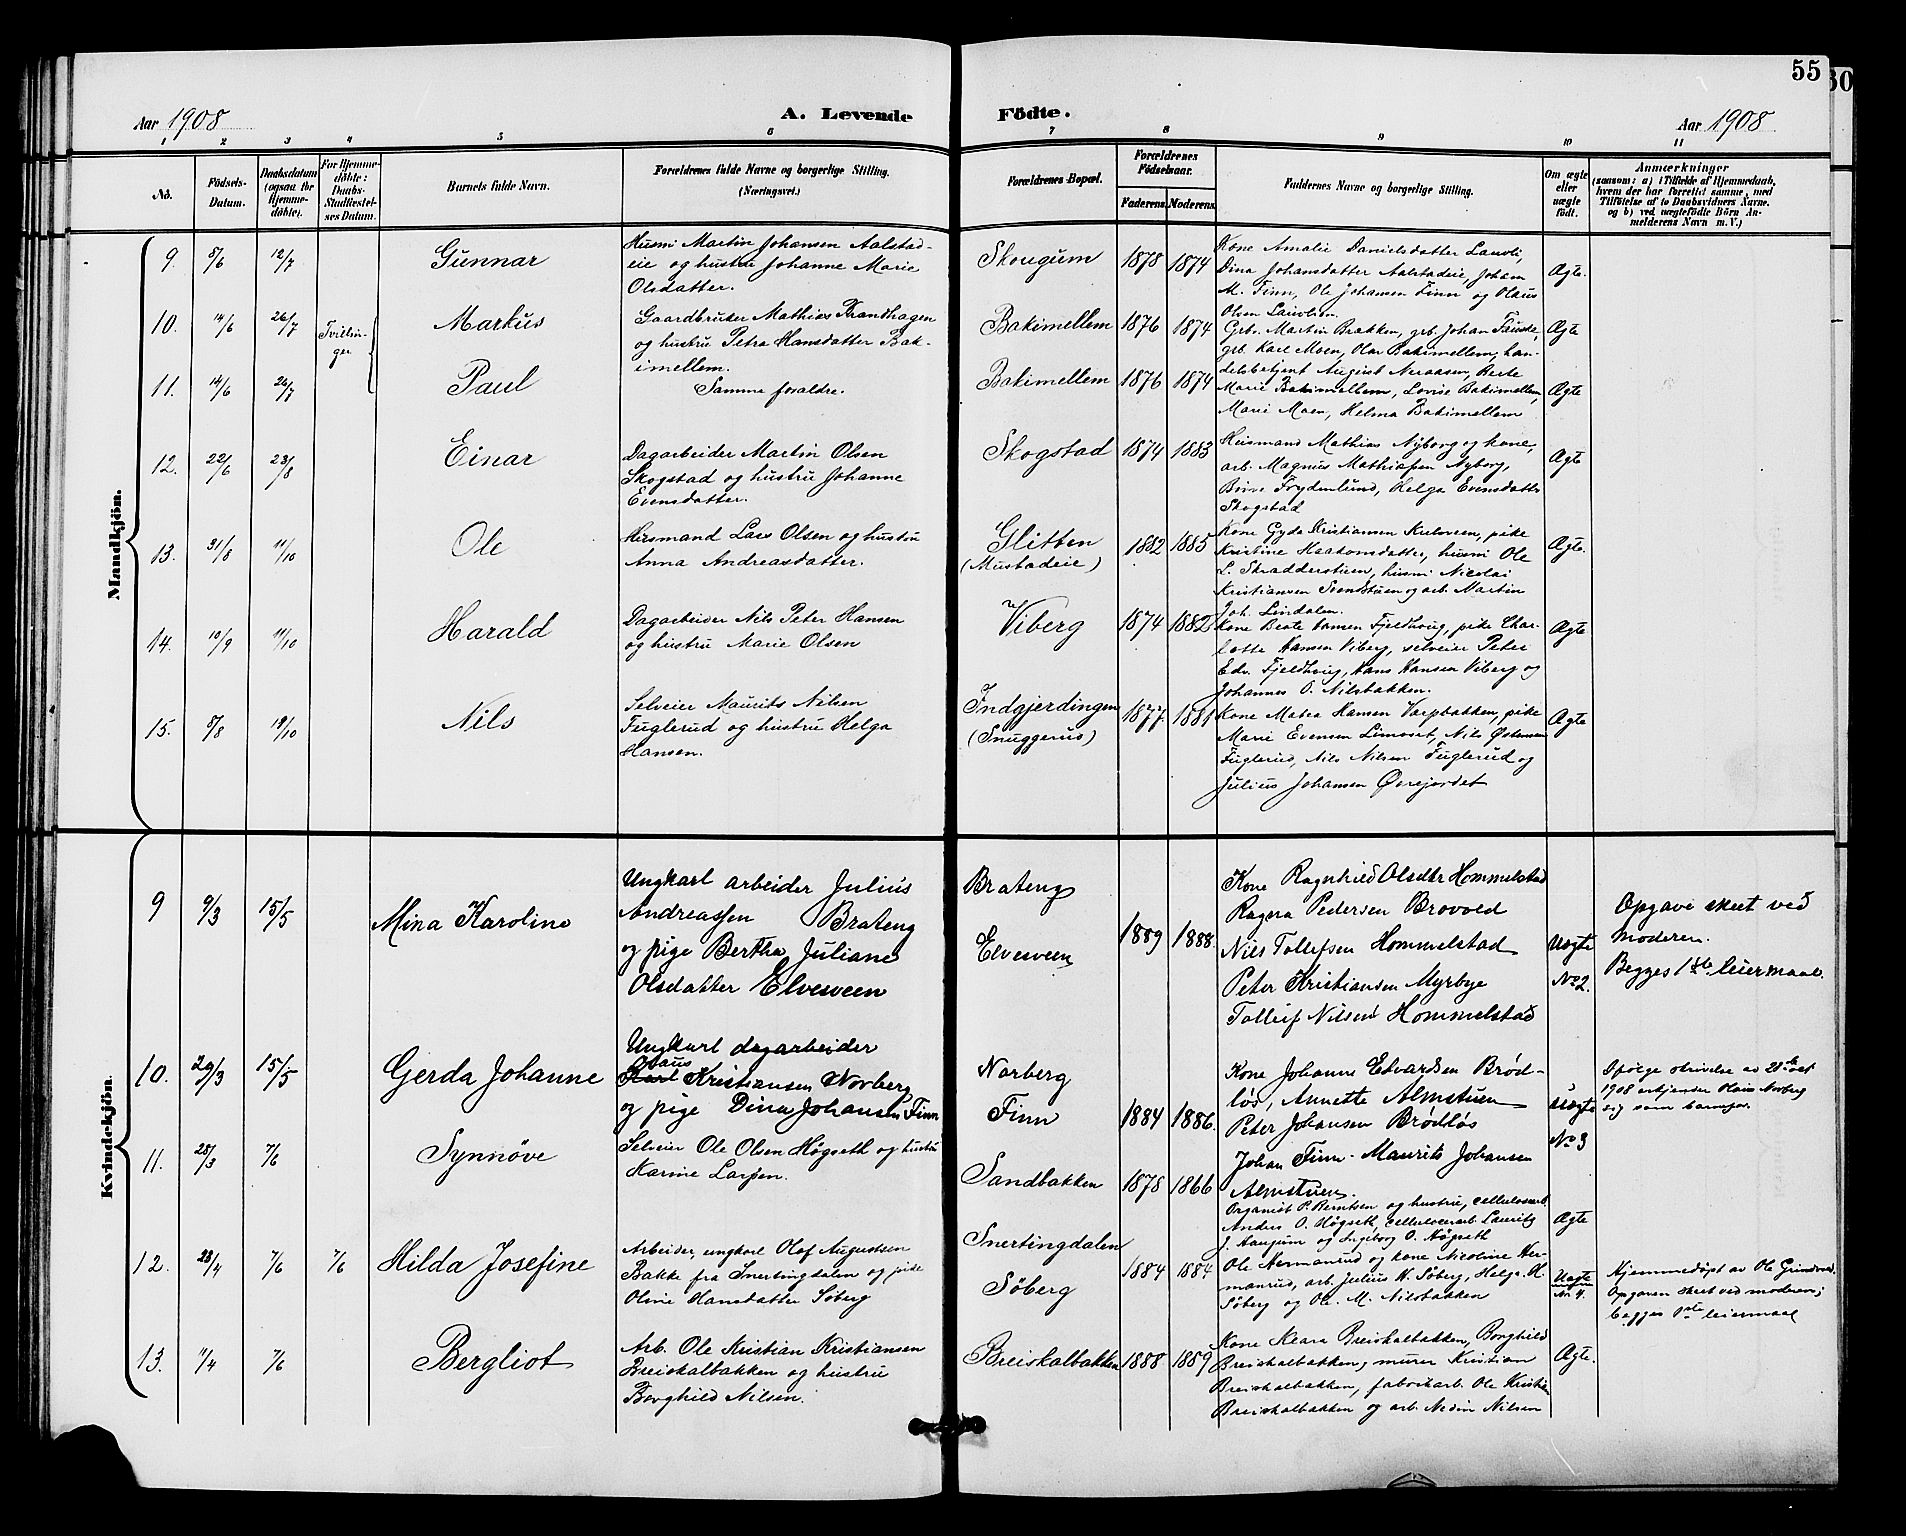 55
Aar 1908
A. Levende Födte.
Aar 1908
1 2 3 4 5 6 7 8 9 10 11
No.
Födsels-Datum.
Daabsdatum (ogsaa for Hjemme-döbte).
For Hjemme-döbte: Daabs-Stadfæstel-ses Datum.
Barnets fulde Navn.
Forældrenes fulde Navne og borgerlige Stilling.
(Næringsvei.)
Forældrenes Bopæl.
Forældrenes Födselsaar.
Faderens. Moderens.
Faddernes Navne og borgerlige Stilling.
Om ægte eller uægte födt.
Anmærkninger
(saasom: a) i Tilfælde af Hjemmedaab,
hvem der har forrettet samme, med
Tilföielse af to Daabsvidners Navne.
og b) ved uægtefödte Börn An-
melderens Navn m. V.)
Mandkjön.
9. 5/6 12/7 Gunnar
Husm Martin Johansen Aalstad-
eie og hustru Johanne Marie
Olsdatter.
Skougum 1878 1874
Kone Amalie Danielsdatter Lauvli,
Dina Johansdatter Aalstadeie, Johan
M. Finn, Ole Johansen Finn og Olaus
Olsen Lauvlien.
Ægte.
10. 14/6 26/7 Tvillin-
ger
Markus
Gaardbruker Mathias Strandhagen
og hustru Petra Hansdatter Bak-
imellem.
Bakimellem 1876 1874
Grb. Martin Brækken, grb. Johan Fauske,
grb. Karl Moen, Olar Bakimellem, han-
Ægte
11. 14/6 26/7 Paul
Samme foraldre.
Bakimellem 1876 1874
delsbetjent August Neraasen, Berte
Marie Bakimellem, Lovise Bakimellem,
Marie Moen, Helma Bakimellem
Ægte
12. 22/6 23/8 Einar
Dagarbeider Martin Olsen
Skogstad og hustru Johanne
Evensdatter.
Skogstad 1874 1883
Husmand Mathias Nyborg og kone,
arb. Magnus Mathiassen Nyborg,
Frydenlund, Helga Evensdatter
Skogstad
Ægte
13. 31/8 11/10 Ole
Husmand Lars Olsen og hustru
Anna Andreasdatter.
Slitten
(Mustadeie)
1882 1885
Kone Gyda Kristiansen Kulsveen, pike
Kristine Haakonsdatter, husm Ole
L. Skradderstuen, husm Nicolai
Kristiansen Svendstuen og arb. Martin
Joh. Lindalen.
Ægte.
14. 10/9 11/10 Harald
Dagarbeider Nils Peter Hansen
og hustru Marie Olsen
Viberg 1874 1882
Kone Beate Hansen Fjeldhaug, pike Char-
lotte Hansen Viberg, selveier Peter
Edv. Fjeldhaug, Hans Hansen Viberg og
Johannes O. Nilsbakken.
Ægte
15. 5/8 18/10 Nils
Selveier Maurits Nilsen
Fuglerud og hustru Helga
Hansen.
Indgjerdingen
(Snuggerud)
1877 1881
Kone Matea Hansen Varpbakken, pike
Marie Evensen Limoset, Nils Østensen
Fuglerud, Nils Nilsen Fuglerud og
Julius Johansen Øvrejordet
Ægte
Kvindekjön.
9 9/3 15/5 Mina Karoline
Ungkarl arbeider Julius
Andreassen Brateng
og pige Bertha Juliane
Olsdatter Elvesveen
Brateng
Elvesveen
1889 1888.
Kone Ragnhild Olsdtr Hommelstad
Ragna Pedersen Brovold
Nils Tollefsen Hommelstad
Peter Kristiansen Myrbye
Tolleif Nilsen Hommelstad
Uægte
No 2.
Opgave skeet ved
moderen.
Begges 1ste leiermaal.
10. 29/3 15/5 Gerda Johanne
Ungkarl dagarbeider
Olaus
Karl Kristiansen Norberg
og pige Dina Johansen Finn
Norberg
Finn
1884 1886.
Kone Johanne Edvardsen Brød-
løs, Annette Almstuen
Peter Johansen Brødløs
Johan Finn. Maurits Johansen
Almstuen.
Uægte
No 3
Ifølge skrivelse av 28de oct
1908 erkjender Olaus Norberg
sig som barnefar.
11. 28/3 7/6 Synnöve
Selveier Ole Olsen Høgseth og hustru
Karine Larsen.
Sandbakken 1878 1866
Organist P. Berntsen og hustru, cellulosearb.
Anders O. Høgseth, cellulosearb. Lauritz
J. Haugum og Ingeborg O. Høgseth
Ægte
12. 23/4 7/6 7/6 Hilda Josefine
Arbeider, ungkarl Olaf Augustsen
Bakke fra Snertingdalen og pike
Oline Hansdatter Søberg
Snertingdalen
Søberg
1884 1884
Ole Nermanrud og kone Nicoline Ner-
manrud, arb. Julius H. Søberg, Helga H.
Søberg og Ole M. Nilsbakken
Uægte
No 4.
Hjemmedøpt av Ole Grindvold.
Opgaven skeet ved moderen;
begges 1ste leiermaal
13. 11/4 7/6 Bergliot
Arb. Ole Kristian Kristiansen
Breiskalbakken og hustru
Borghild Nilsen.
Breiskalbakken 1888 1889
Kone Klara Breiskalbakken, Borghild
Breiskalbakken, murer Kristian
Breiskalbakken, fabrikarb. Ole Kristian
Breiskalbakken og arb. Nedin Nilsen
Ægte.